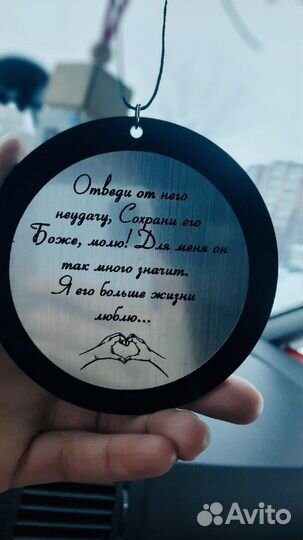 Отведи от него
неудачу, Сохрани его
Боже, молю! Для меня он
так много значит.
Я его больше жизни
люблю...
Avito